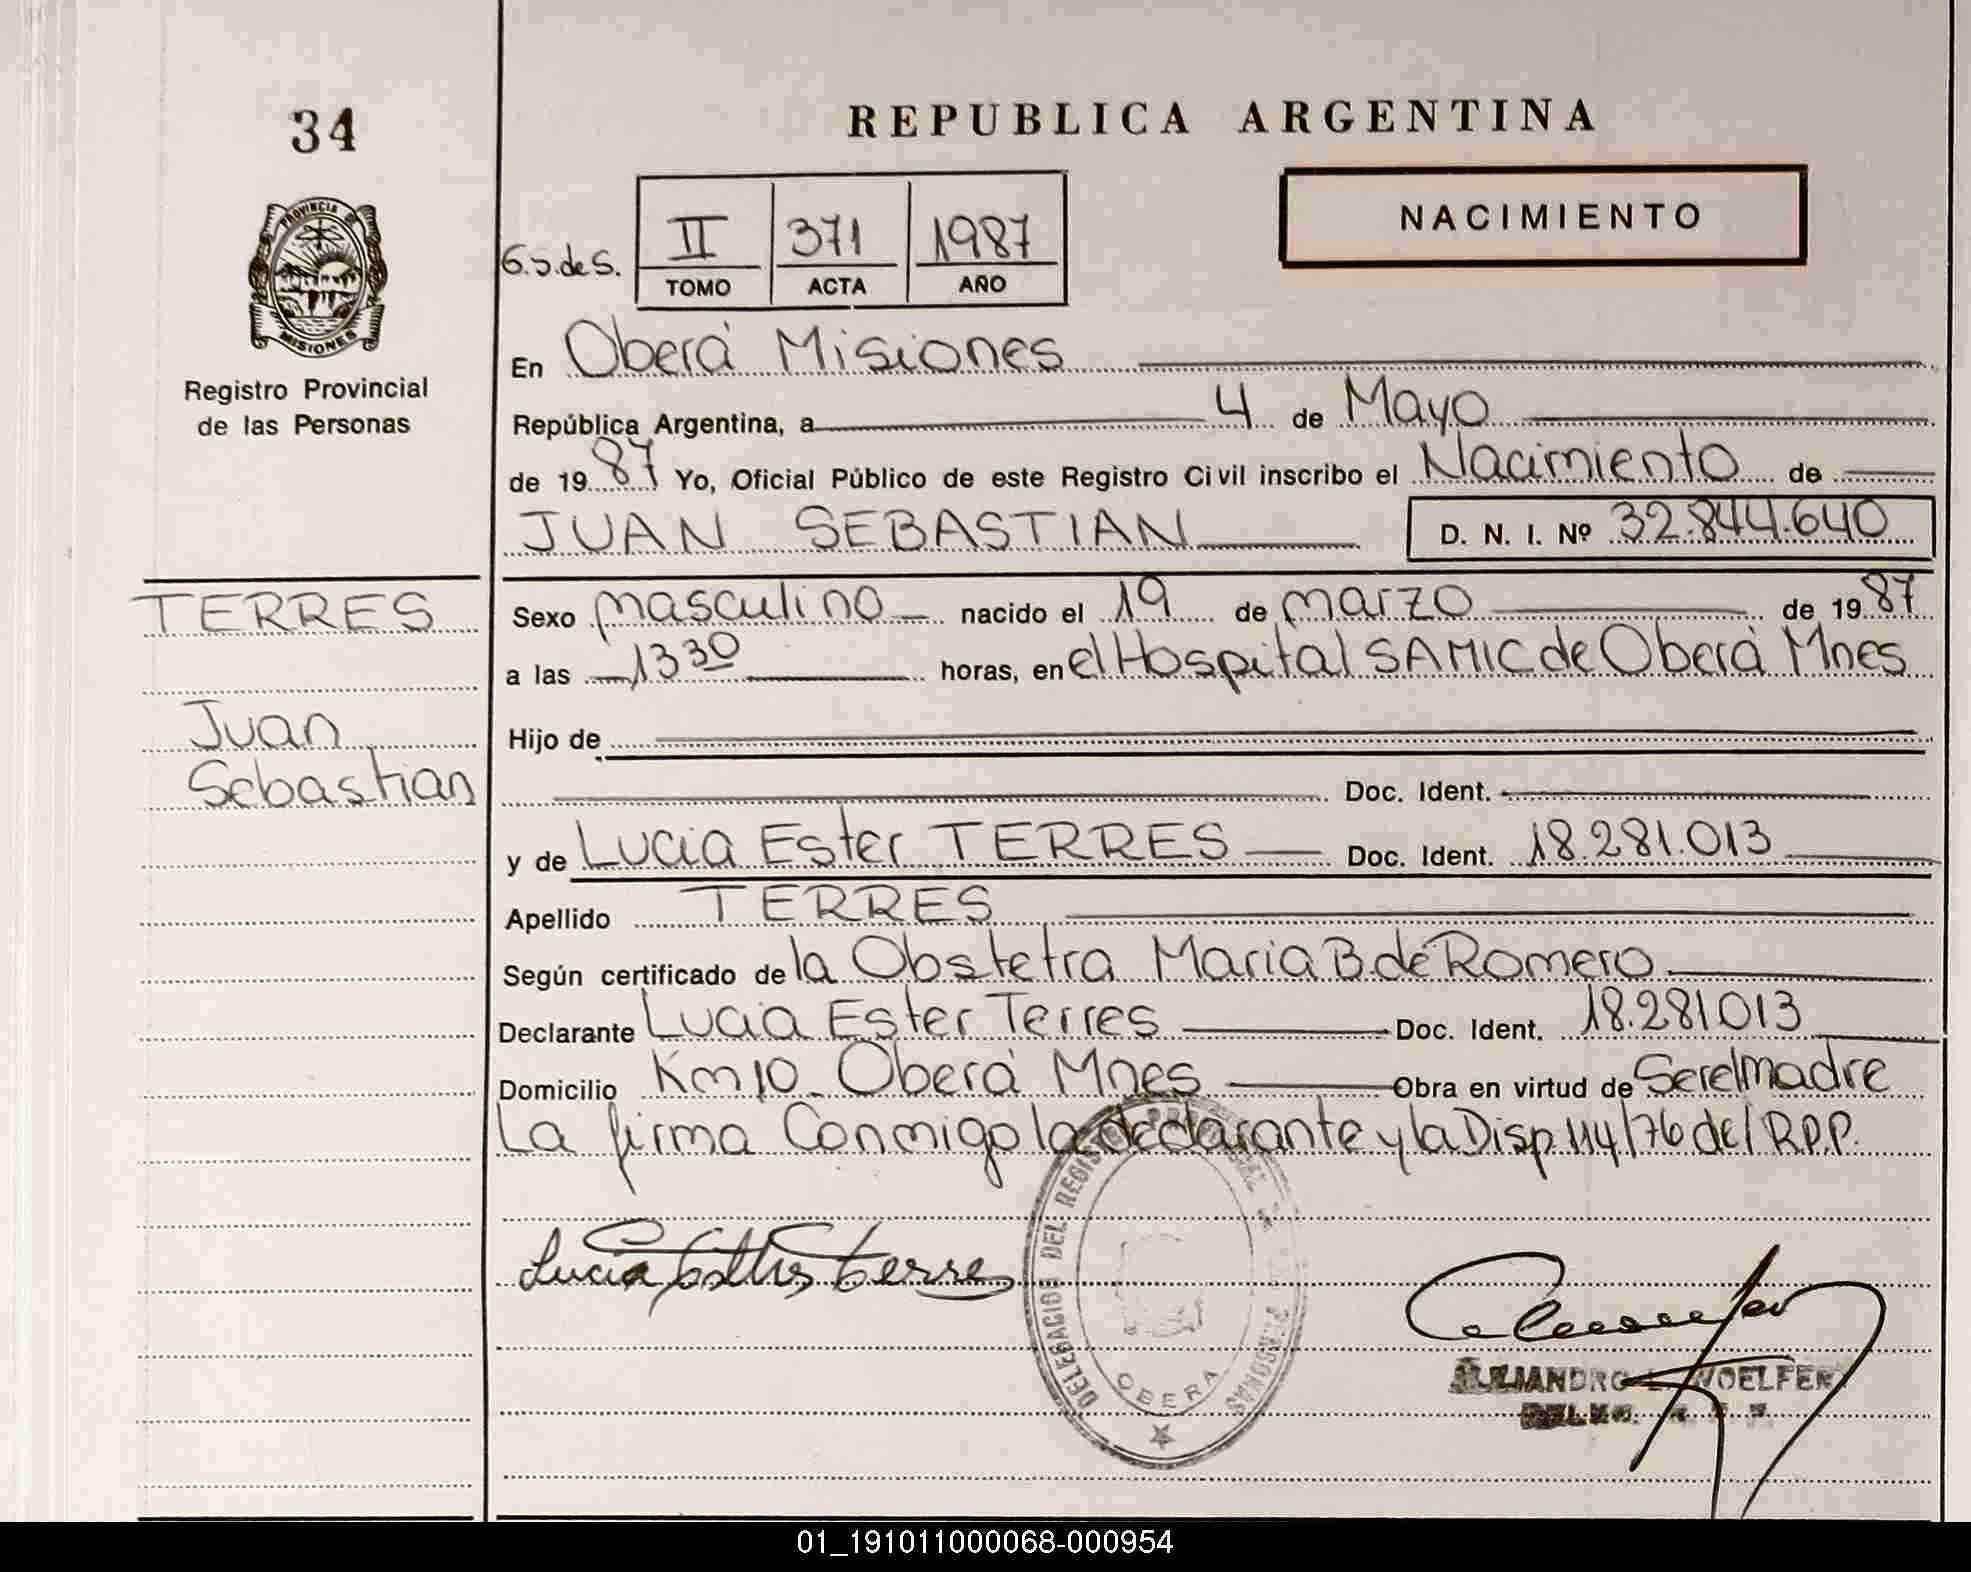 34
REPUBLICA ARGENTINA
PROVINCIA DE
MISIONES
Registro Provincial
de las Personas
NACIMIENTO
II 371 1987
TOMO ACTA AÑO
En Oberá Misiones
República Argentina, a 4 de Mayo
de 1987 Yo, Oficial Público de este Registro Civil inscribo el Nacimiento de
JUAN SEBASTIAN D. N. I. Nº 32.844.640
TERRES
Juan
Sebastian
Sexo masculino nacido el 19 de marzo de 1987
a las 13 30 horas, en el Hospital SAMIC de Oberá Mnes
Hijo de
Doc. Ident.
y de Lucia Ester TERRES Doc. Ident. 18.281.013
Apellido TERRES
Según certificado de la Obstetra Maria B. de Romero
Declarante Lucia Ester Terres Doc. Ident. 18.281.013
Domicilio Km 10 Oberá Mnes Obra en virtud de Ser el madre
La firma Conmigo la declarante y la Disp. 114/76 del R.P.P.
Lucia Esther Terres
DELEGACION DEL REGISTRO PROVINCIAL DE LAS PERSONAS
OBERA
ALEJANDRO L. WOELFERT
01_191011000068-000954